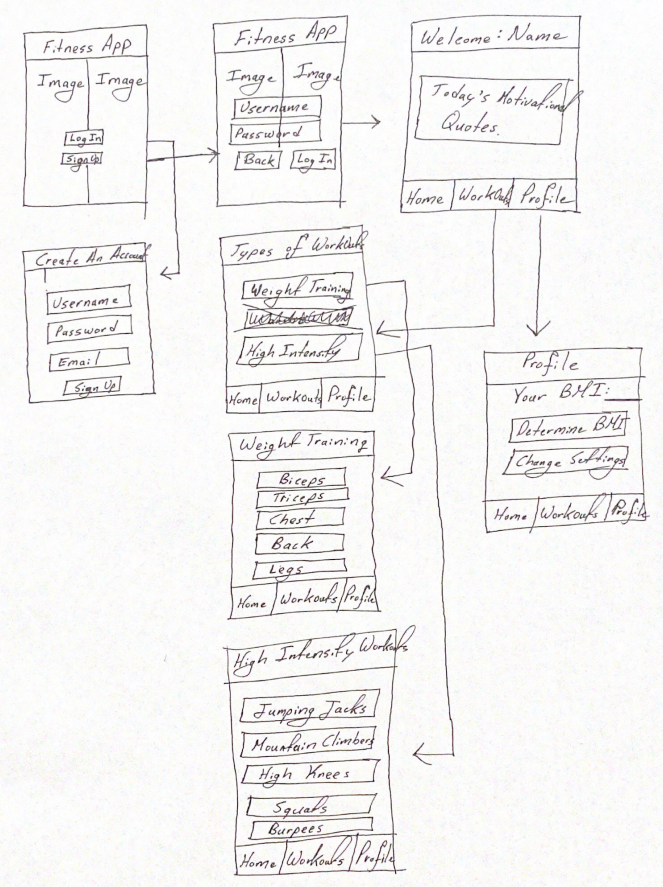 Fitness App
Image Image
Log In
Sign Up
Fitness App
Image Image
Username
Password
Back Log In
Welcome: Name
Today's Motivational
Quotes.
Home Workouts Profile
Create An Account
Username
Password
Email
Sign Up
Types of Workouts
Weight Training
High Intensity
Home Workouts Profile
Profile
Your BMI:
Determine BMI
Change Settings
Home Workouts Profile
Weight Training
Biceps
Triceps
Chest
Back
Legs
Home Workouts Profile
High Intensity Workouts
Jumping Jacks
Mountain Climbers
High Knees
Squats
Burpees
Home Workouts Profile